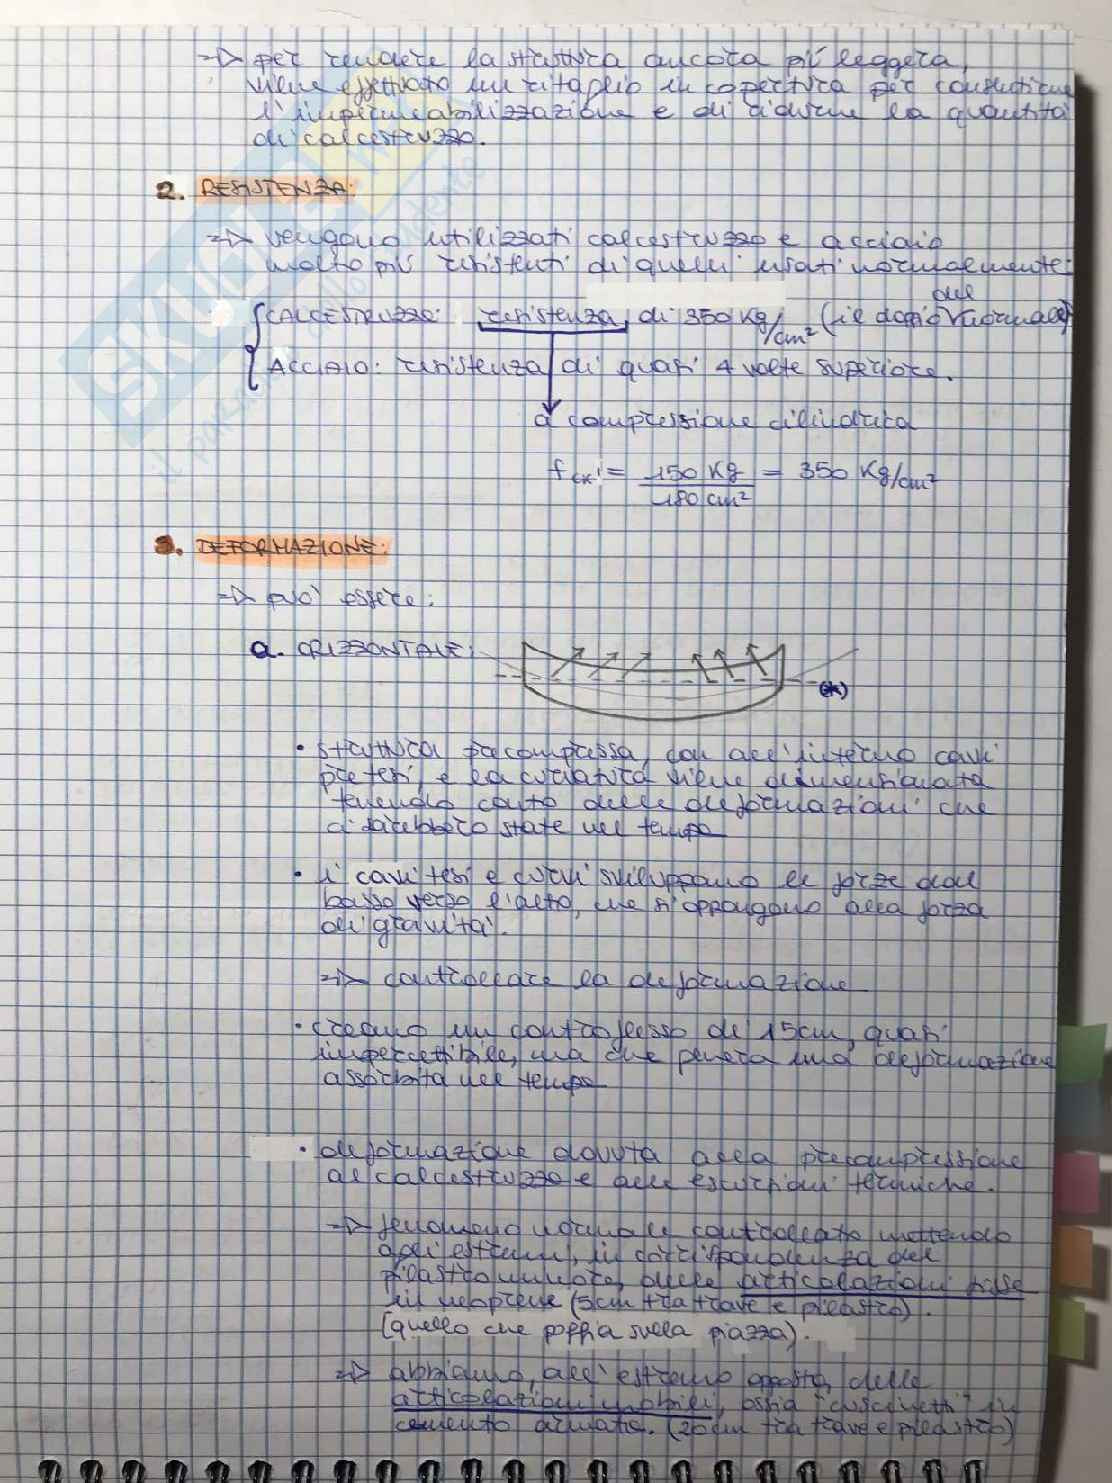 => per rendere la struttura ancora più leggera,
viene effettuato un ritaglio in copertura per consentirne
l'impermeabilizzazione e di ridurne la quantità
di calcestruzzo.
2. RESISTENZA:
=> vengono utilizzati calcestruzzo e acciaio
molto più resistenti di quelli usati normalmente:
CALCESTRUZZO: resistenza di 350 Kg/cm² (il doppio del normale)
ACCIAIO: resistenza di quasi 4 volte superiore.
a compressione cilindrica
fck' = 150 Kg / 180 cm² = 350 Kg/cm²
3. DEFORMAZIONE:
=> può essere:
a. ORIZZONTALE:
(*)
• struttura precompressa, con all'interno cavi
pretesi, e la curvatura viene dimensionata
tenendo conto delle deformazioni che
ci sarebbero state nel tempo
• i cavi tesi e curvi sviluppano le forze dal
basso verso l'alto, che si oppongono alla forza
di gravità.
=> controllare la deformazione
• creano un controflesso di 15cm, quasi
impercettibile, ma che genera una deformazione
assorbita nel tempo
• deformazione dovuta alla precompressione
al calcestruzzo e alle escursioni termiche.
=> fenomeno normale controllato mettendo
agli estremi, in corrispondenza del
pilastro minore, delle articolazioni fisse
in neoprene (5cm tra trave e pilastro).
(quello che poggia sulla piazza).
=> abbiamo, all'estremo opposto, delle
articolazioni mobili, ossia "cuscinetti" in
cemento armato. (20cm tra trave e pilastro)
SKUOLA